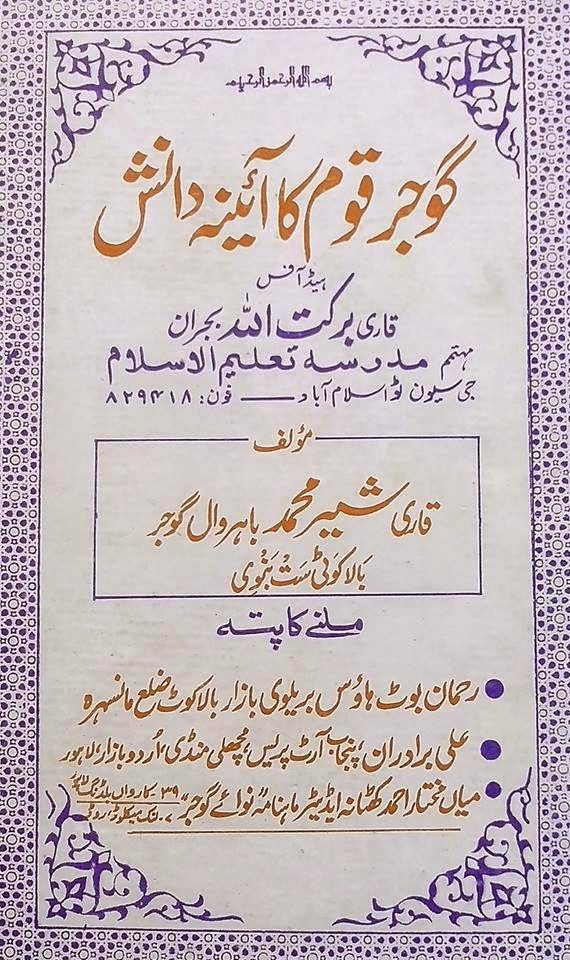 بسم اللہ الرحمن الرحیم
گوجر قوم کا آئینہ دانش
ہیڈ آفس
قاری برکت اللہ بجران
مہتمم مدرسہ تعلیم الاسلام
جی سیون ٹو اسلام آباد — فون: ۸۲۹۴۱۸
مؤلف
قاری شیر محمد باہروال گوجر
بالاکوٹی ست بنوی
ملنے کا پتہ
● رحمان بوٹ ہاؤس بریلوی بازار بالاکوٹ ضلع مانسہرہ
● علی برادران، پنجاب آرٹ پریس، مچھلی منڈی، اردو بازار، لاہور
● میاں مختار احمد کھٹانہ ایڈیٹر ماہنامہ "نوائے گوجر" ۳۹ کارواں بلڈنگ
لنک میکلوڈ روڈ